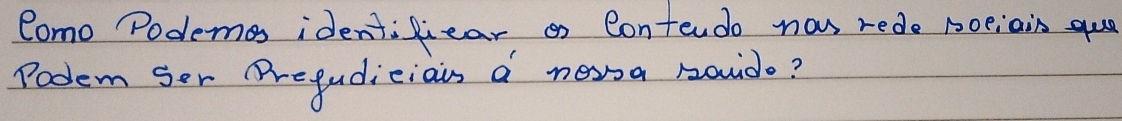 Como Podemos identificar os Conteudo nas rede sociais que
Podem ser Prejudiciais á nossa saúide?